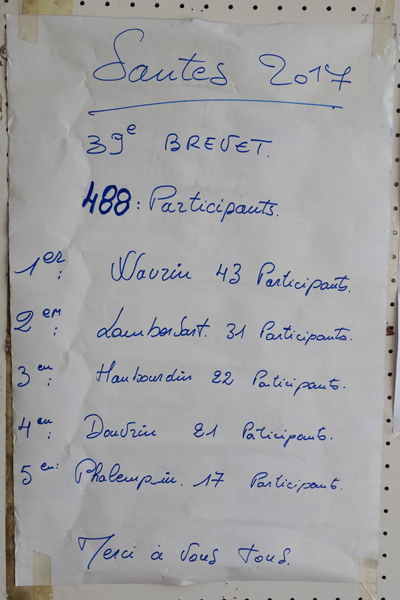 Santes 2017
39e BREVET.
488 : Participants.
1er : Wavrin 43 Participants.
2em : Lambersart. 31 Participants.
3em : Haubourdin 22 Participants.
4em : Douvrin 21 Paticipants.
5em : Phalempin. 17 Participants.
Merci à Vous tous.